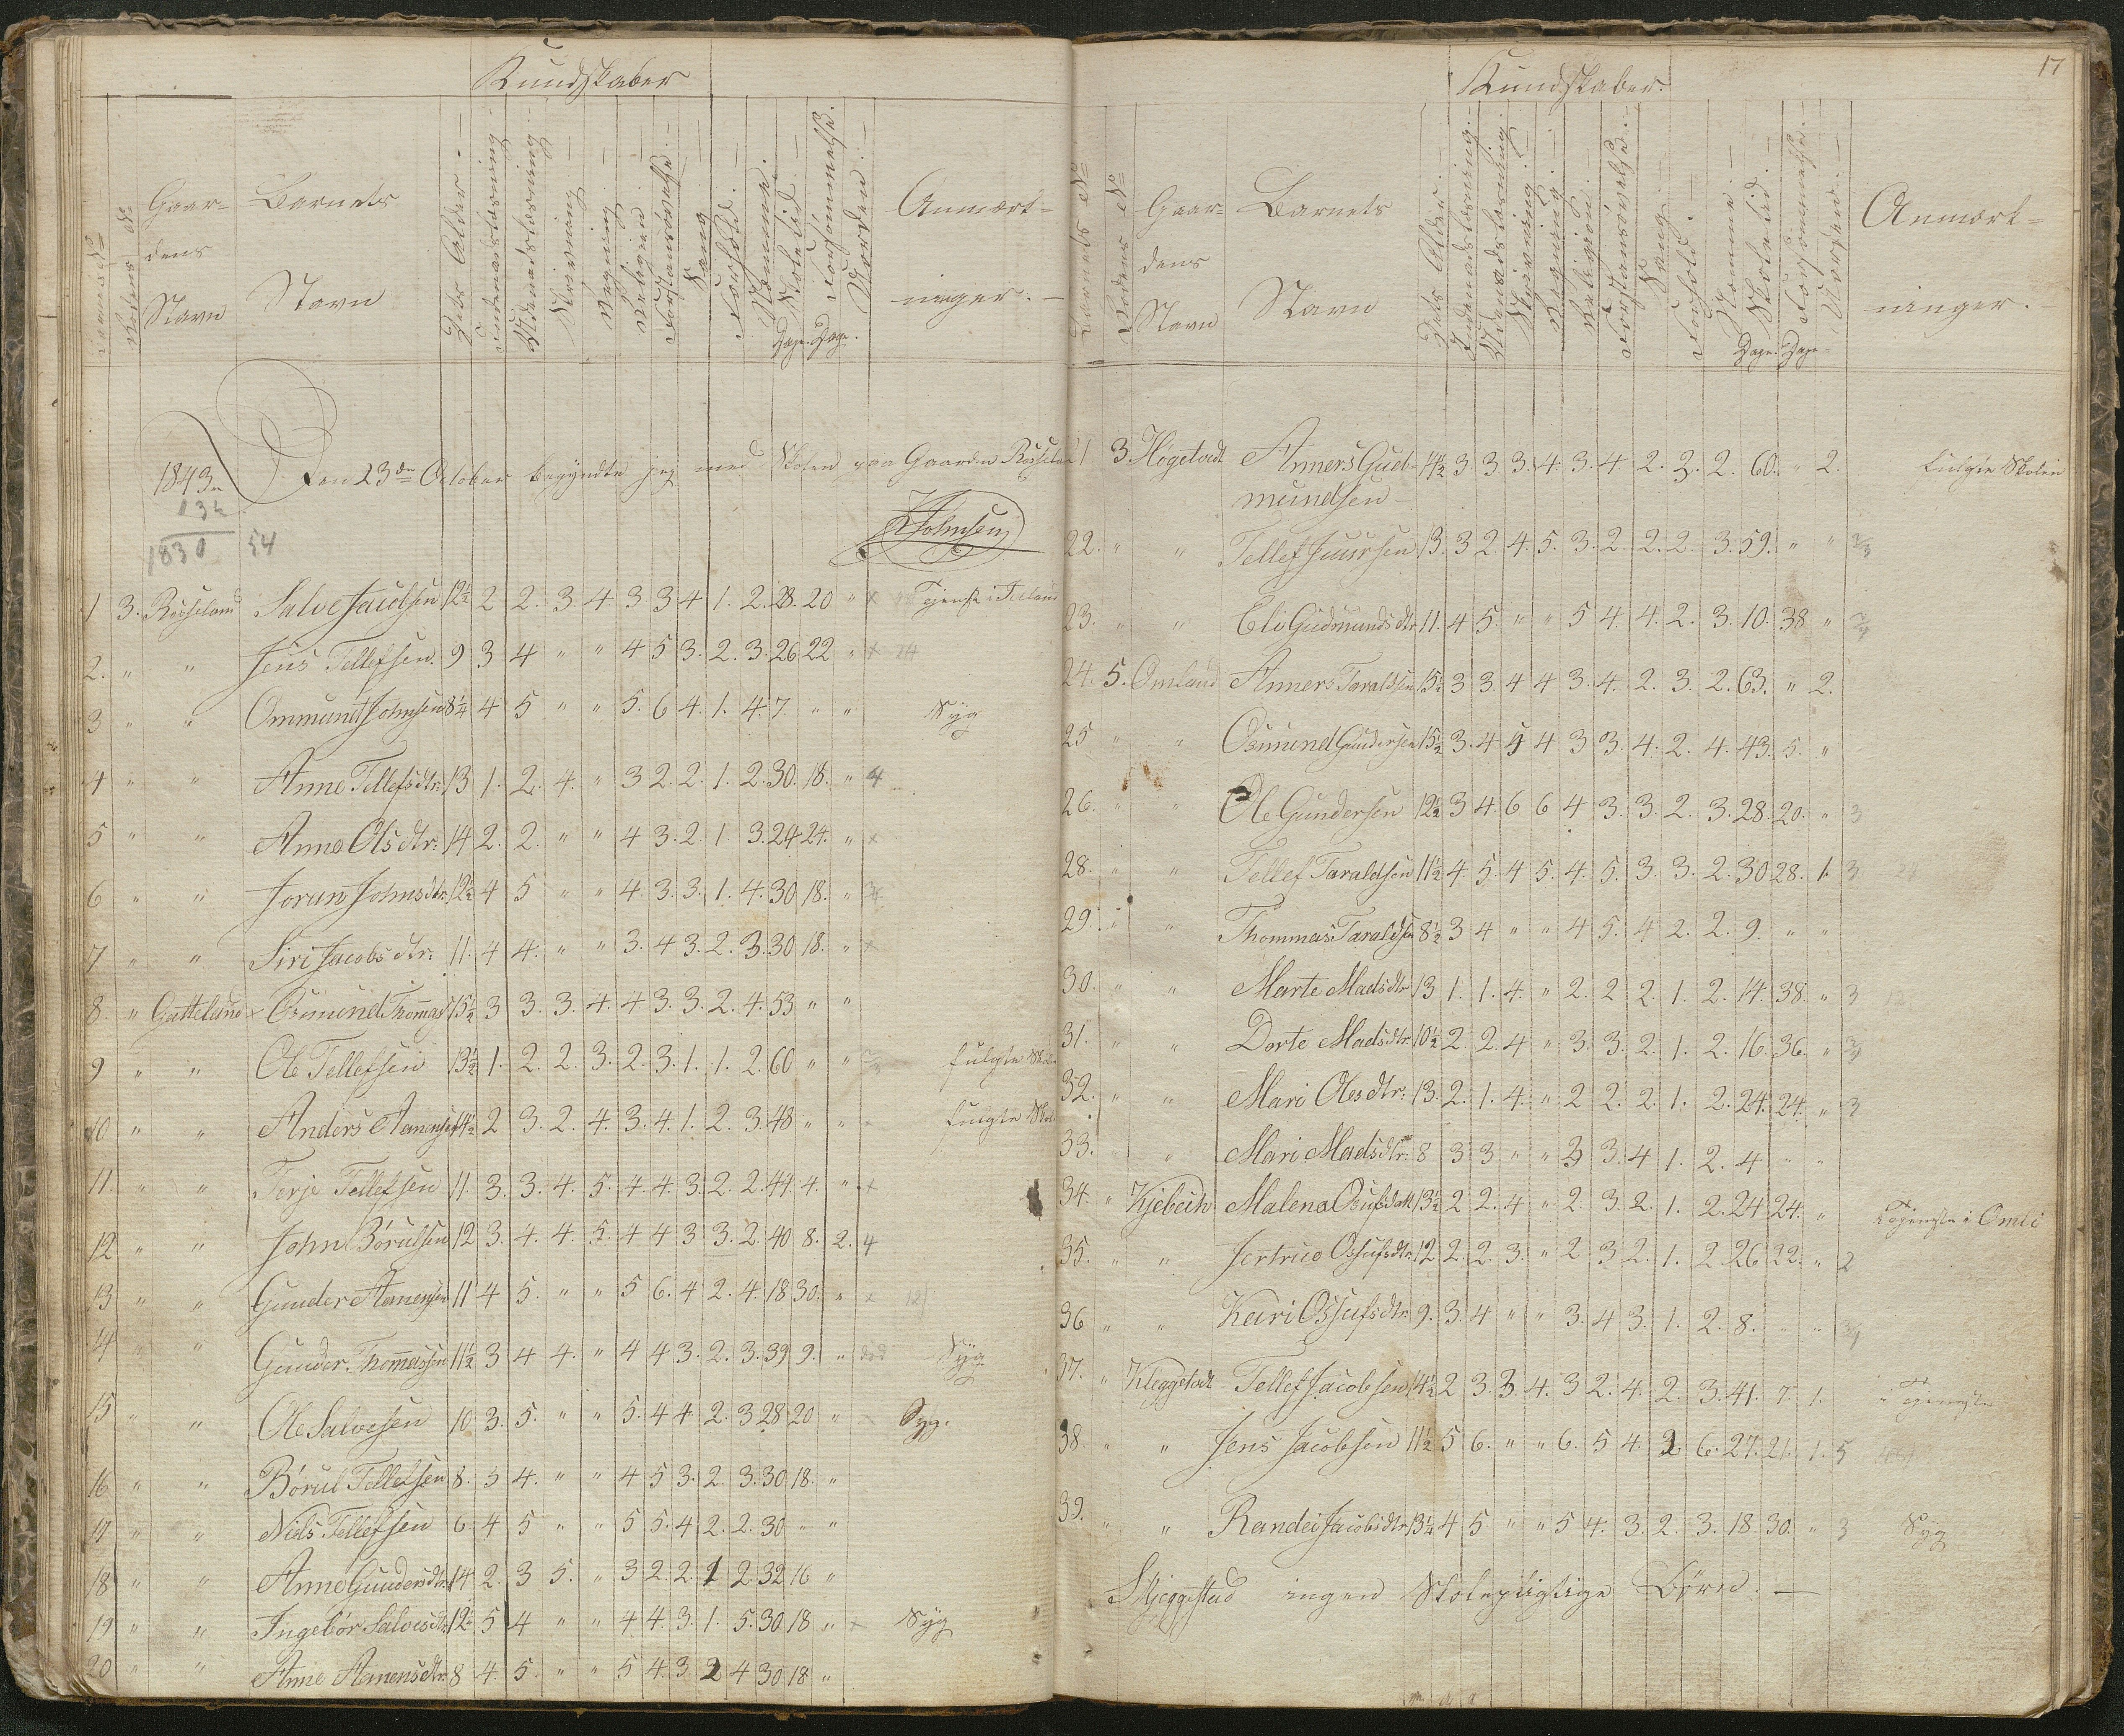 Kundskaber
Barnets No
Rodens No
Gaar-
dens
Navn
Barnets
Navn
Dets Alder.
Indenadslæsning
Udenadslæsning
Skrivning
Regning
Religion
Forstansøvelse
Sang
Forhold
Nemme.
Skoletid. Dage.
Forsømmelse. Dage.
Orden.
Anmærk-
ninger.
1843
Den 23de October begyndte jeg med Skolen paa Gaarden Røiseland
13½
1830 54
Johnsen
1 3. Røiseland Salve Jacobsen 12½ 2 2. 3. 4 3 3 4 1. 2. 28. 20 " x
2. " " Jens Tellefsen. 9 3 4 " " 4 5 3. 2. 3. 26 22 " x 24
3 " " Ommund Johnsen 8¼ 4 5 " " 5. 6 4. 1. 4. 7. " " Syg
4 " " Anne Tellefsdtr: 13 1. 2. 4. " 3 2. 2. 1. 2. 30. 18. " 4
5 " " Anne Olsdtr: 14 2. 2. " " 4 3. 2. 1 3. 24 24. " x
6 " " Jorun Johnsdtr. 12½ 4 5 " " 4. 3. 3. 1. 4. 30 18. "
7 " " Siri Jacobsdtr: 11. 4 4. " " 3. 4 3. 2. 3. 30 18. " x
8. " Gatteland Osmund Thommas 15½ 3 3. 3. 4. 4 3. 3. 2. 4. 53 " "
9 " " Ole Tellefsen 13½ 1. 2. 2. 3. 2. 3. 1. 1. 2. 60 " " fulgte Skolen
10 " " Anders Aanensen 14½ 2 3. 2. 4. 3. 4. 1. 2. 3. 48 " " fulgte Skol
11. " " Terje Tellefsen 11. 3. 3. 4. 5. 4. 4. 3. 2. 2. 44 4. " x
12 " " John Børulsen 12 3. 4. 4. 5. 4 4 3 3. 2. 40 8. 2. 4
13 " " Gunder Aanensen 11 4 5. " " 5 6. 4 2. 4. 18 30. " x 12
14 " " Gunder Thommassen 11½ 3 4 4. " 4 4 3. 2. 3. 39 9. " død Syg
15 " " Ole Salvesen 10 3. 5. " " 5. 4 4. 2. 3 28 20 " x Syg.
16 " " Børul Tellefsen 8. 3 4. " " 4 5 3. 2. 3. 30 18. "
17 " " Niels Tellefsen 6. 4 5 " " 5 5. 4 2. 2. 30 " "
18 " " Anne Gundersdtr. 14 2. 3 5. " 3 2. 2. 1 2. 32 16 "
19 " " Ingebor Salvesdtr. 12½ 5 4 " " 4 4. 3. 1. 5. 30 18 " x Syg
20 " " Anne Aanensdtr. 8 4. 5. " " 5 4. 3. 2 4 30 18. "
17
Kundskaber.
Barnets No
Rodens No
Gaar-
dens
Navn
Barnets
Navn
Dets Alder.
Indenadslæsning.
Udenadslæsning.
Skrivning.
Regning.
Religion.
Forstansøvelse.
Sang.
Forhold.
Nemme.
Skoletid. Dage.
Forsømmelse. Dage
Orden.
Anmærk-
ninger.
21 3. Høgestadt Anners Gud- 14½ 3. 3 3. 4. 3. 4 2. 2. 2. 60. " 2. fulgte Skolen
mundsen
22. " " Tellef Juursen 13. 3 2. 4. 5. 3. 2. 2. 2 3. 59. " "
23. " " Eli Gudmundsdtr 11. 4 5. " " 5 4. 4. 2. 3. 10. 38 "
24. 5. Omland Anners Taraldsen 15½ 3 3. 4 4 3. 4. 2. 3. 2. 63. " 2.
25 " " Osmund Gundersen 15½ 3. 4 5 4 3 3. 4. 2. 4. 43. 5. "
26. " " Ole Gundersen 12½ 3 4. 6 6 4 3. 3. 2. 3. 28. 20. " 3
28. " " Tellef Taraldsen 11½ 4. 5. 4 5. 4. 5. 3. 3. 2. 30 28. 1. 3
29. " " Thommas Taraldsen 8½ 3 4 " " 4 5. 4 2. 2. 9. " "
30. " " Marte Madsdtr 13 1. 1. 4. " 2. 2 2. 1. 2. 14. 38. " 3
31. " " Dorte Madsdtr. 10½ 2. 2. 4 " 3. 3. 2. 1. 2. 16. 36. "
32. " " Mari Olesdtr: 13. 2. 1. 4. " 2 2. 2. 1. 2. 24. 24. " 3
33. " " Mari Madsdtr: 8 3 3 " " 3 3. 4 1. 2. 4 " "
34. " Malena Osufsdatt 13½ 2 2. 4 " 2. 3. 2. 1. 2. 24 24. " Tjeneste i Omli
35. " " Jertrud Ossufsdtr. 12 2. 2. 3. " 2. 3 2. 1. 2. 26 22. " 2
36 " " Kari Ossufsdtr. 9. 3. 4 " " 3. 4 3. 1. 2. 8. " "
37. " Kleggstadt Tellef Jacobsen 14½ 2 3. 3 4. 3 2. 4. 2. 3. 41. 7. 1. i Tjeneste
38. " " Jens Jacobsen 11½ 5 6. " " 6. 5 4. 2. 6. 27. 21. 1. 5
39. " " Randei Jacobsdtr. 13¼ 4 5 " " 5 4. 3. 2. 3. 18. 30. " 3 Syg
Skjeggestad ingen Skolepligtige Børn. —